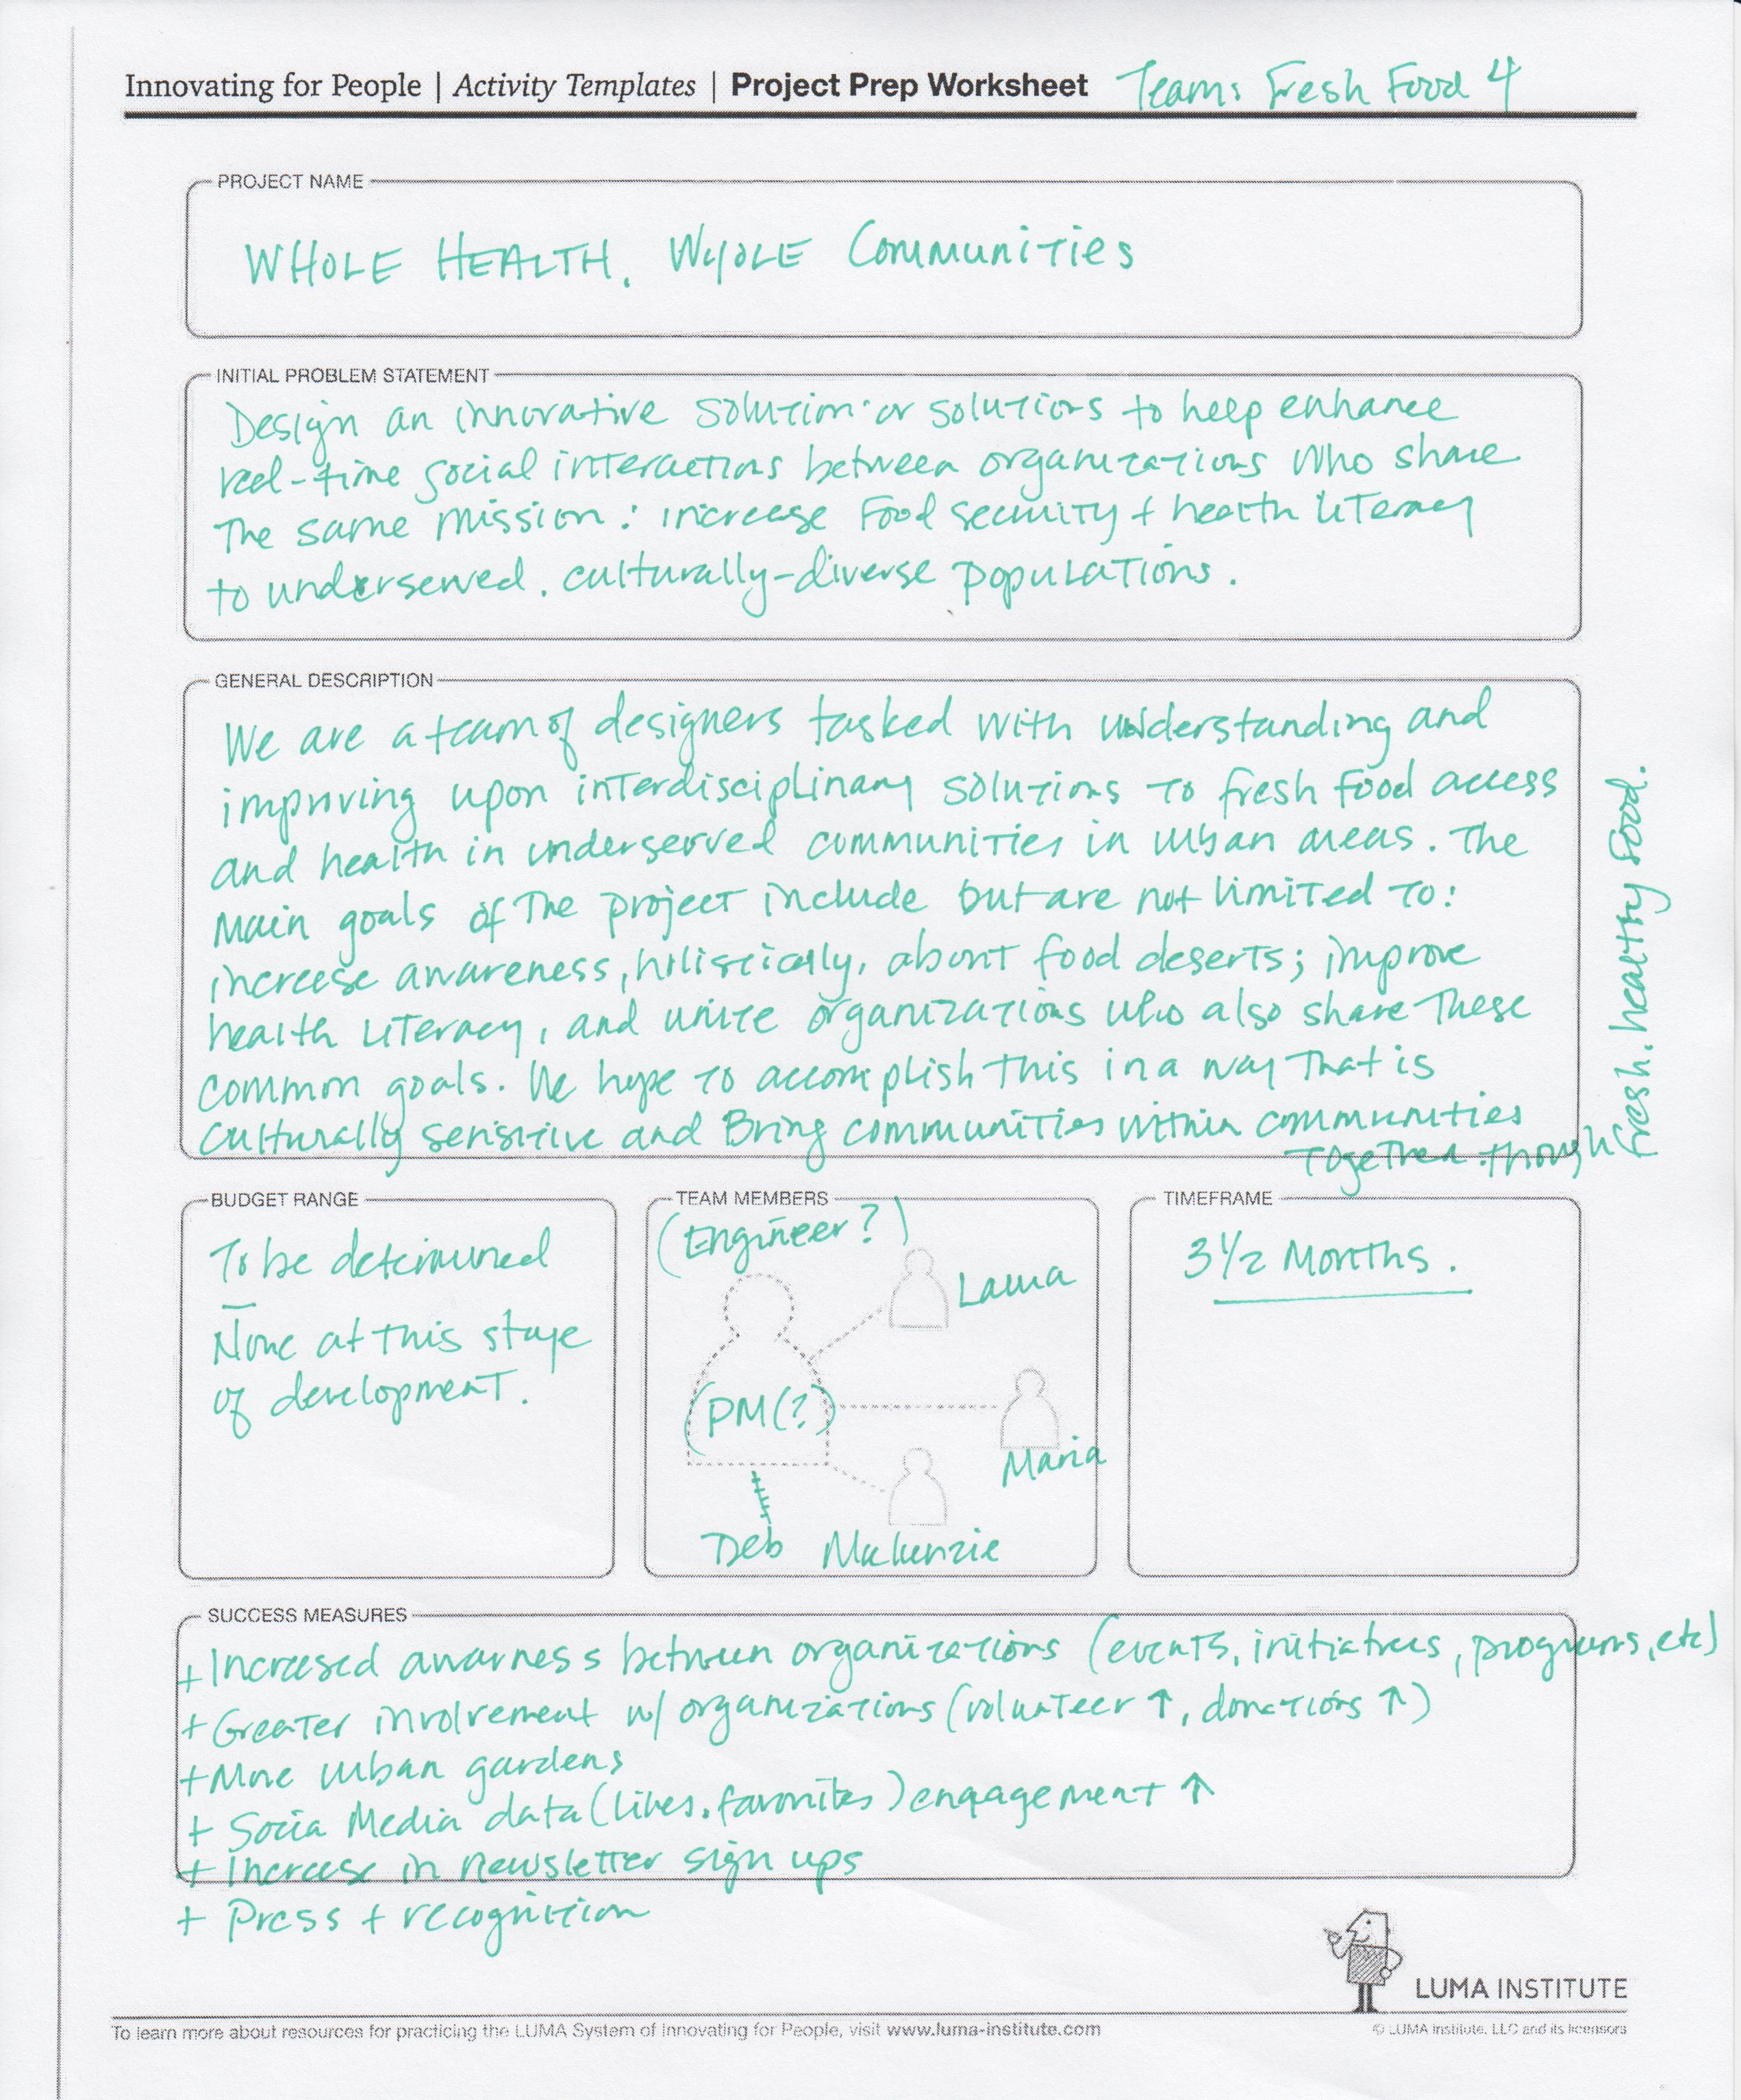 Innovating for People | Activity Templates | Project Prep Worksheet Team: Fresh Food 4
PROJECT NAME
WHOLE HEALTH. WHOLE Communities
INITIAL PROBLEM STATEMENT
Design an innovative solution or solutions to help enhance
real-time social interactions between organizations who share
the same mission: increase Food security + health literacy
to underserved, culturally-diverse populations.
GENERAL DESCRIPTION
We are a team of designers tasked with understanding and
improving upon interdisciplinary solutions to fresh food access
and health in underserved communities in urban areas. The
main goals of the project include but are not limited to:
increase awareness, holistically, about food deserts; improve
health literacy, and unite organizations who also share these
common goals. We hope to accomplish this in a way that is
culturally sensitive and Bring communities within communities
together through
fresh, healthy food.
BUDGET RANGE
To be determined
—
None at this stage
of development.
TEAM MEMBERS
(Engineer?)
Laura
(PM(?)
Maria
Deb Mckenzie
TIMEFRAME
3 1/2 Months.
SUCCESS MEASURES
+ Increased awarness between organizations (events, initiatives, programs, etc)
+ Greater involvement w/ organizations (volunteer ↑, donations ↑)
+ More urban gardens
+ Socia Media data (likes, favorites) engagement ↑
+ Increase in newsletter sign ups
+ Press + recognition
LUMA INSTITUTE
To learn more about resources for practicing the LUMA System of Innovating for People, visit www.luma-institute.com
© LUMA Institute, LLC and its licensors